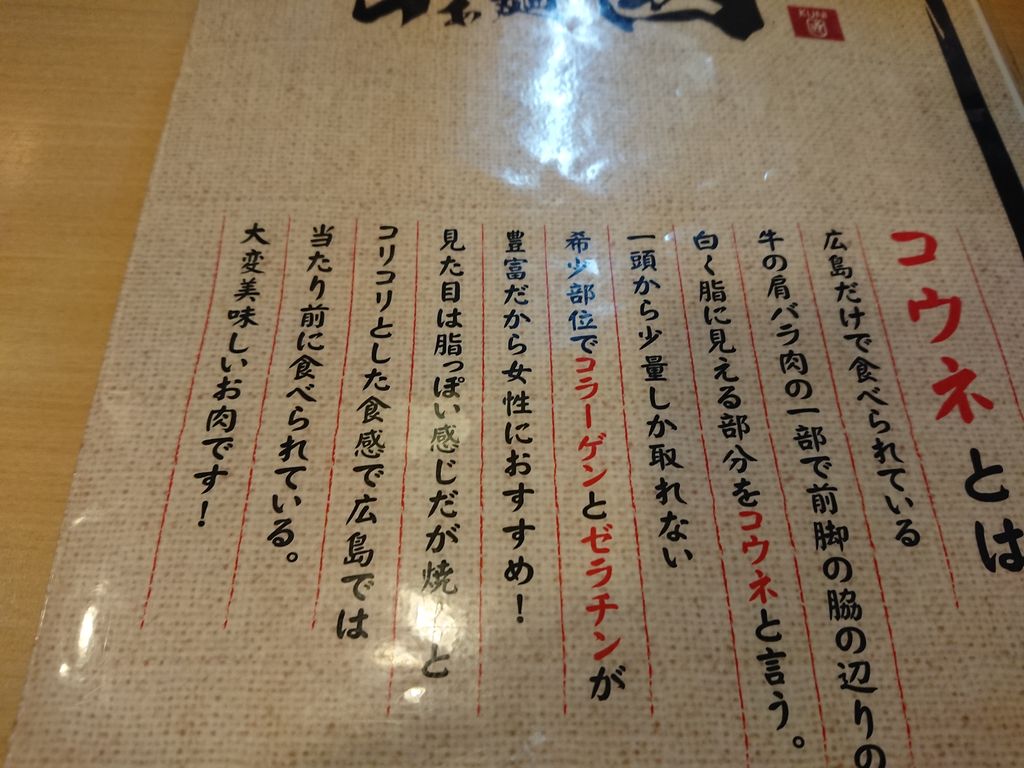 KUNI
コウネとは
広島だけで食べられている
牛の肩バラ肉の一部で前脚の脇の辺りの
白く脂に見える部分をコウネと言う。
一頭から少量しか取れない
希少部位でコラーゲンとゼラチンが
豊富だから女性におすすめ!
見た目は脂っぽい感じだが焼くと
コリコリとした食感で広島では
当たり前に食べられている。
大変美味しいお肉です!